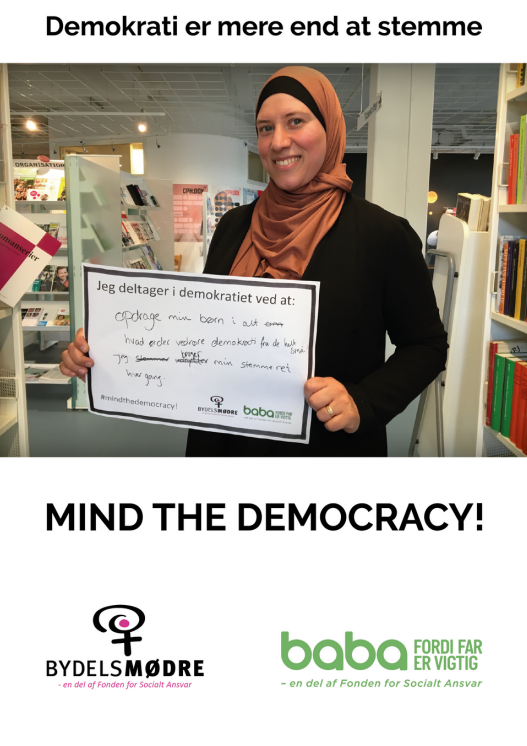 Demokrati er mere end at stemme
ORGANISATION
Jeg deltager i demokratiet ved at:
opdrage min børn i alt
hvad der vedrøre demokrati fra de helt
små.
bruger
jeg stemmer min stemmeret
hver gang.
#mindthedemocracy!
BYDELSMØDRE
baba FORDI FAR
ER VIGTIG
MIND THE DEMOCRACY!
BYDELSMØDRE
- en del af Fonden for Socialt Ansvar
baba FORDI FAR
ER VIGTIG
– en del af Fonden for Socialt Ansvar